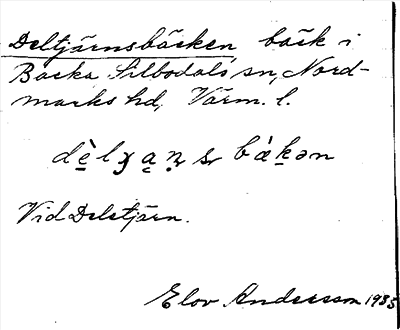 Deltjärnsbäcken, bäck i
Backa Silbodals sn, Nord-
marks hd, Värm. l.
Vid Deletjärn.
Elov Andersson 1935